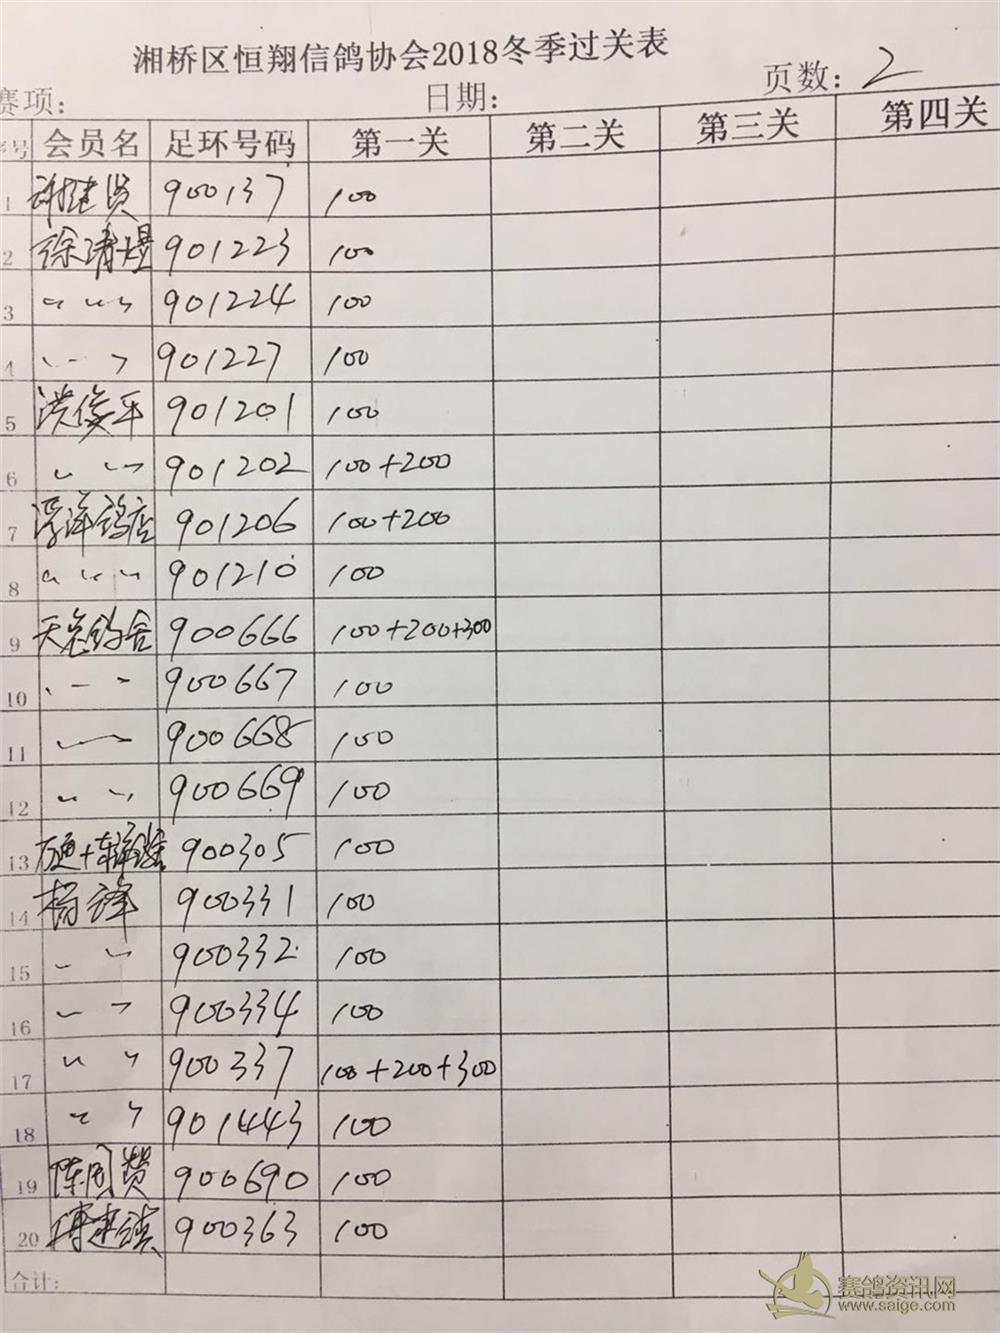 湘桥区恒翔信鸽协会2018冬季过关表
赛项： 日期： 页数：2
序号 会员名 足环号码 第一关 第二关 第三关 第四关
1 900137 100
2 徐清煜 901223 100
3 〃 〃 〃 901224 100
4 〃 〃 901227 100
5 洪俊平 901201 100
6 〃 〃 901202 100+200
7 浮洋鸽店 901206 100+200
8 〃 〃 〃 901210 100
9 900666 100+200+300
10 〃 〃 〃 900667 100
11 〃 〃 900668 100
12 〃 〃 900669 100
13 900305 100
14 杨锋 900331 100
15 〃 〃 900332 100
16 〃 〃 900334 100
17 〃 〃 900337 100+200+300
18 〃 〃 901443 100
19 900690 100
20 900363 100
合计：
赛鸽资讯网
www.saige.com